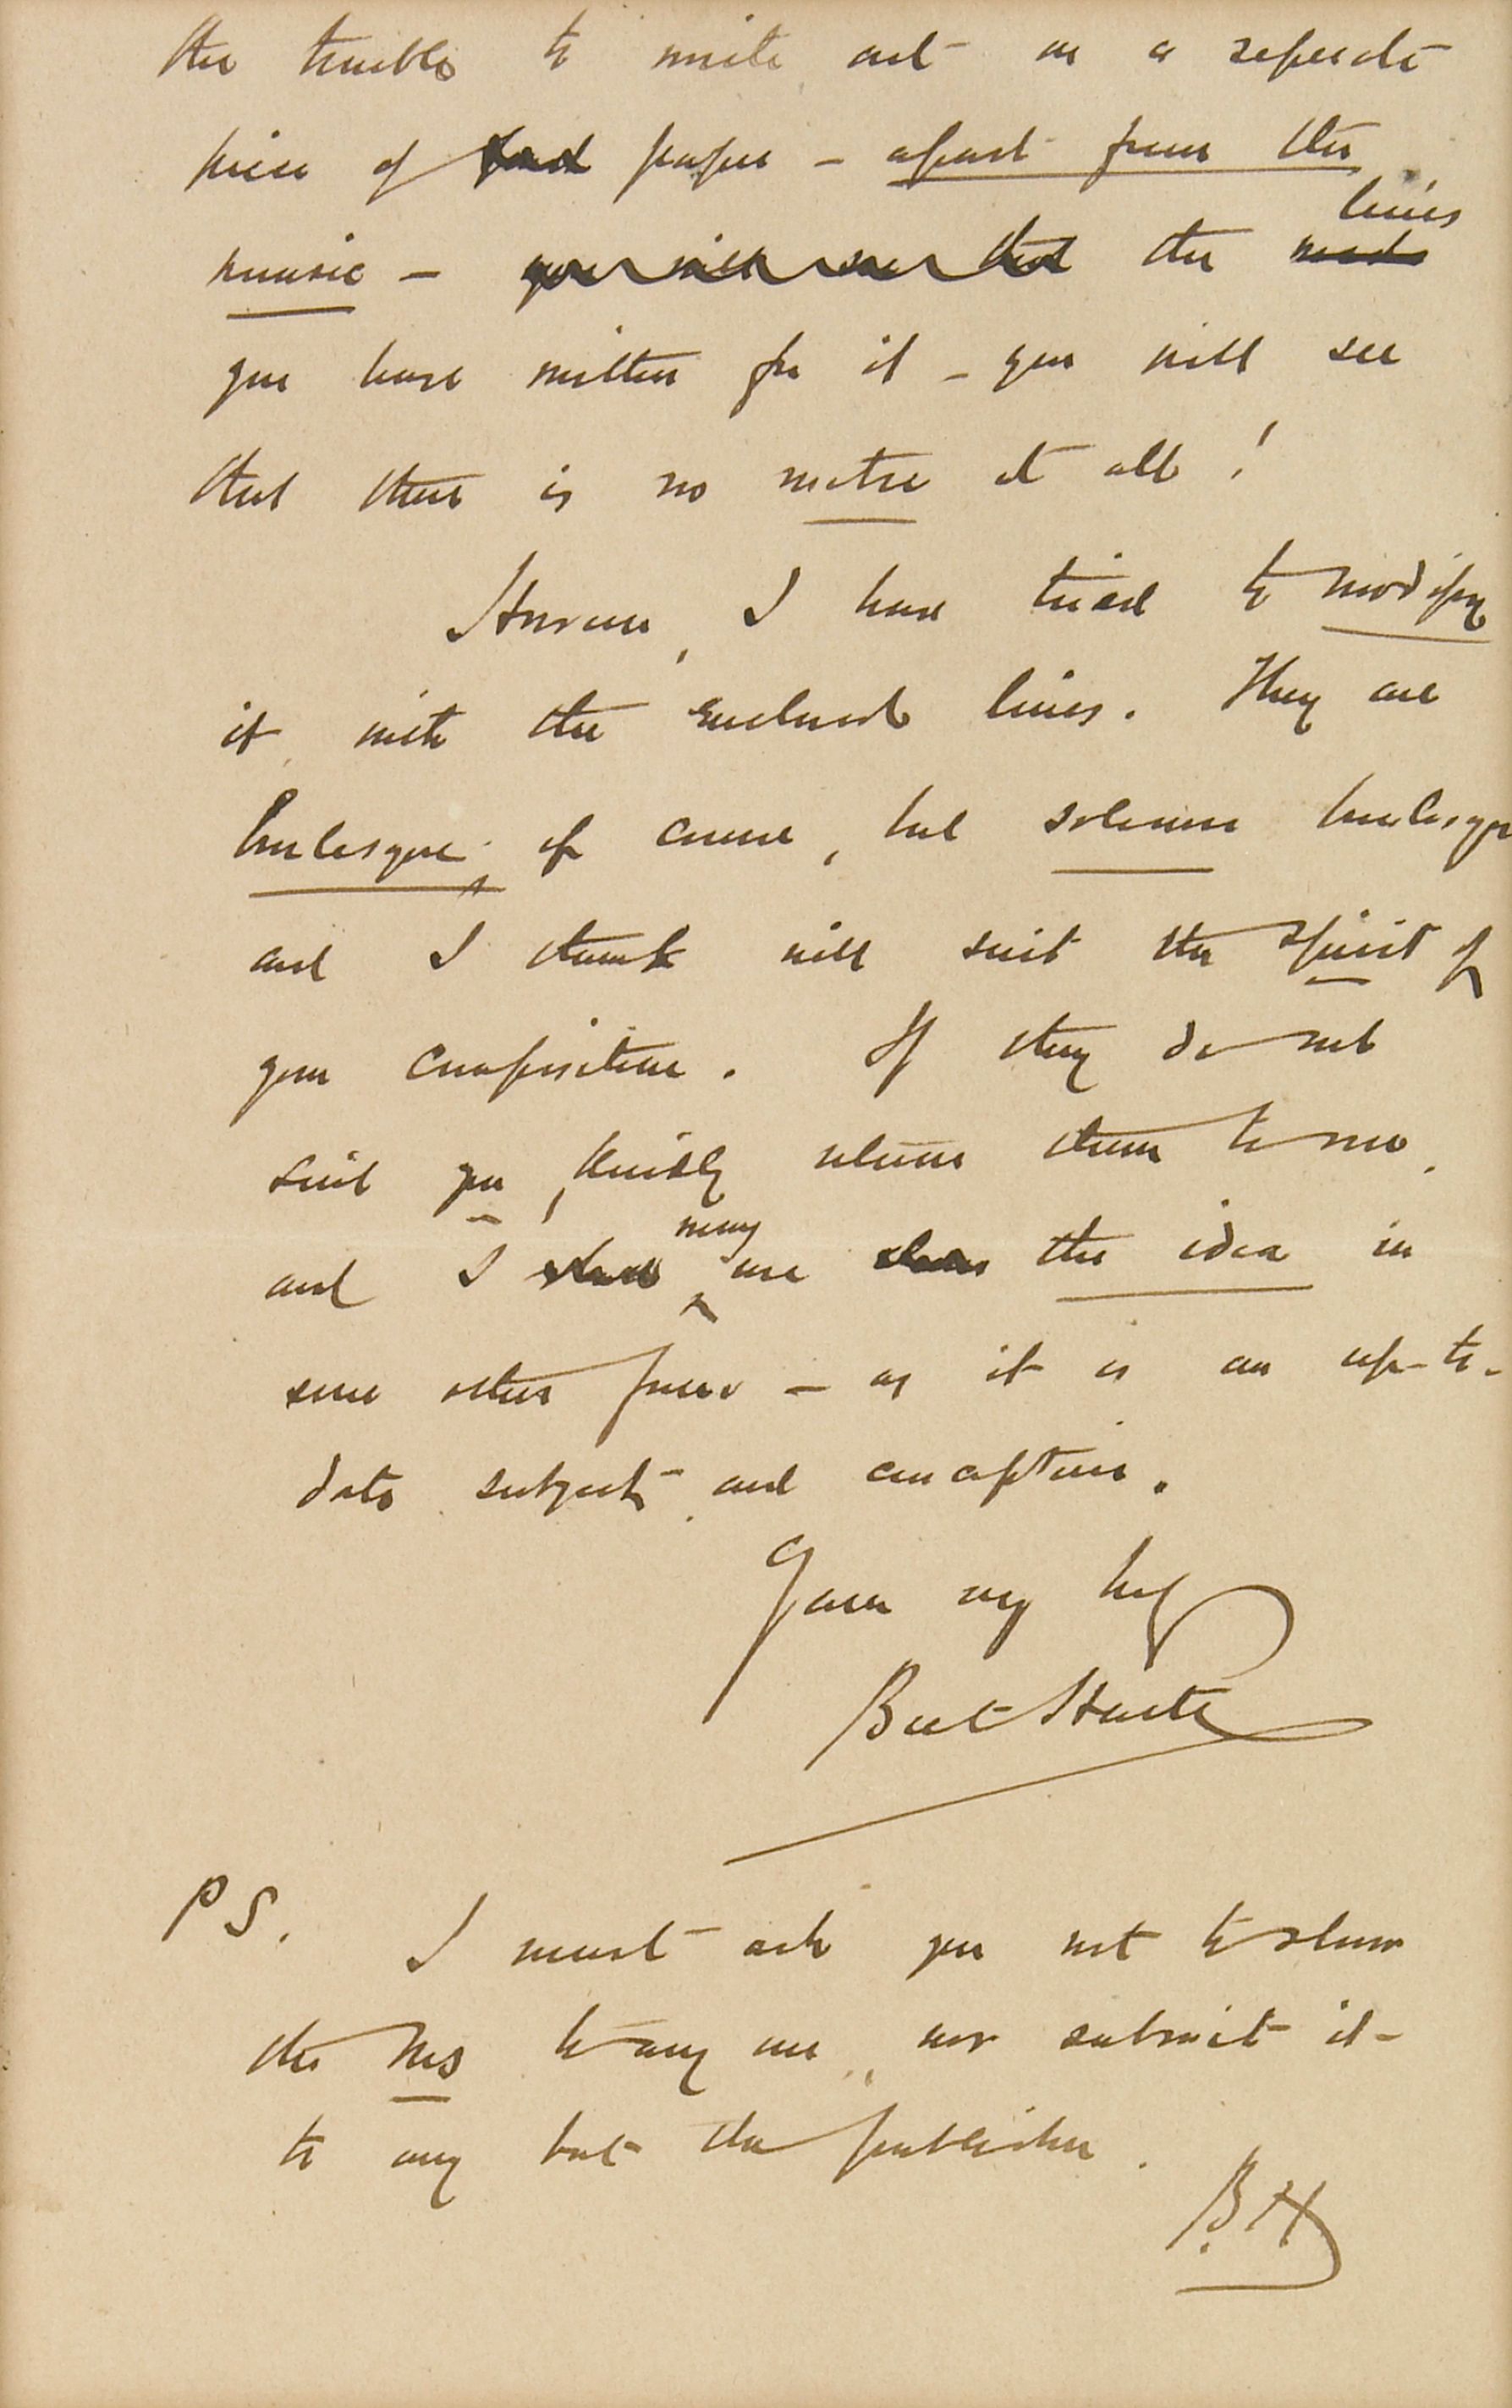 the trouble to write out on a seperate
piece of paper — apart from the
music — you will see that the words lines
you have written for it — you will see
that there is no metre at all!
However, I have tried to modify
it with the enclosed lines. They are
burlesque, of course, but solemn burlesque
and I think will suit the spirit of
your composition. If they do not
suit you, kindly return them to me,
and I shall may use the idea in
some other form — as it is an up-to-
date subject and conception.
Yours very truly
Bret Harte
P.S. I must ask you not to show
the MS to any one, nor submit it
to any but the publisher.
B.H.